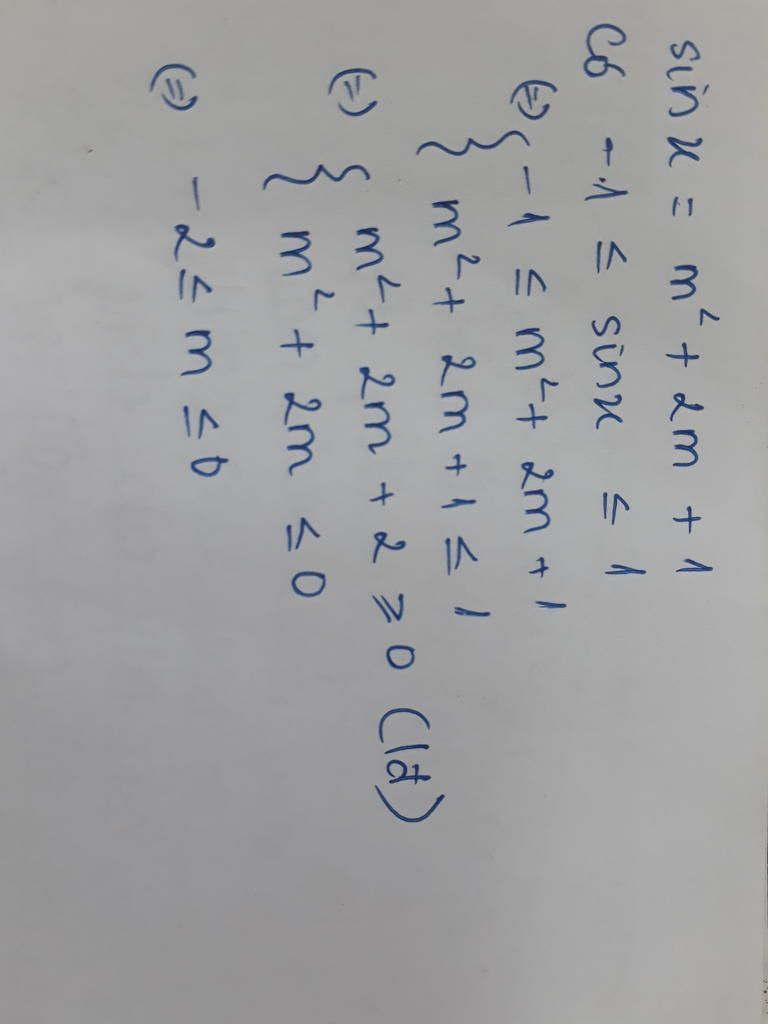 sin x = m² + 2m + 1
Có -1 ≤ sin x ≤ 1
(=) { -1 ≤ m² + 2m + 1
m² + 2m + 1 ≤ 1
(=) { m² + 2m + 2 ≥ 0 (lđ)
m² + 2m ≤ 0
(=) -2 ≤ m ≤ 0